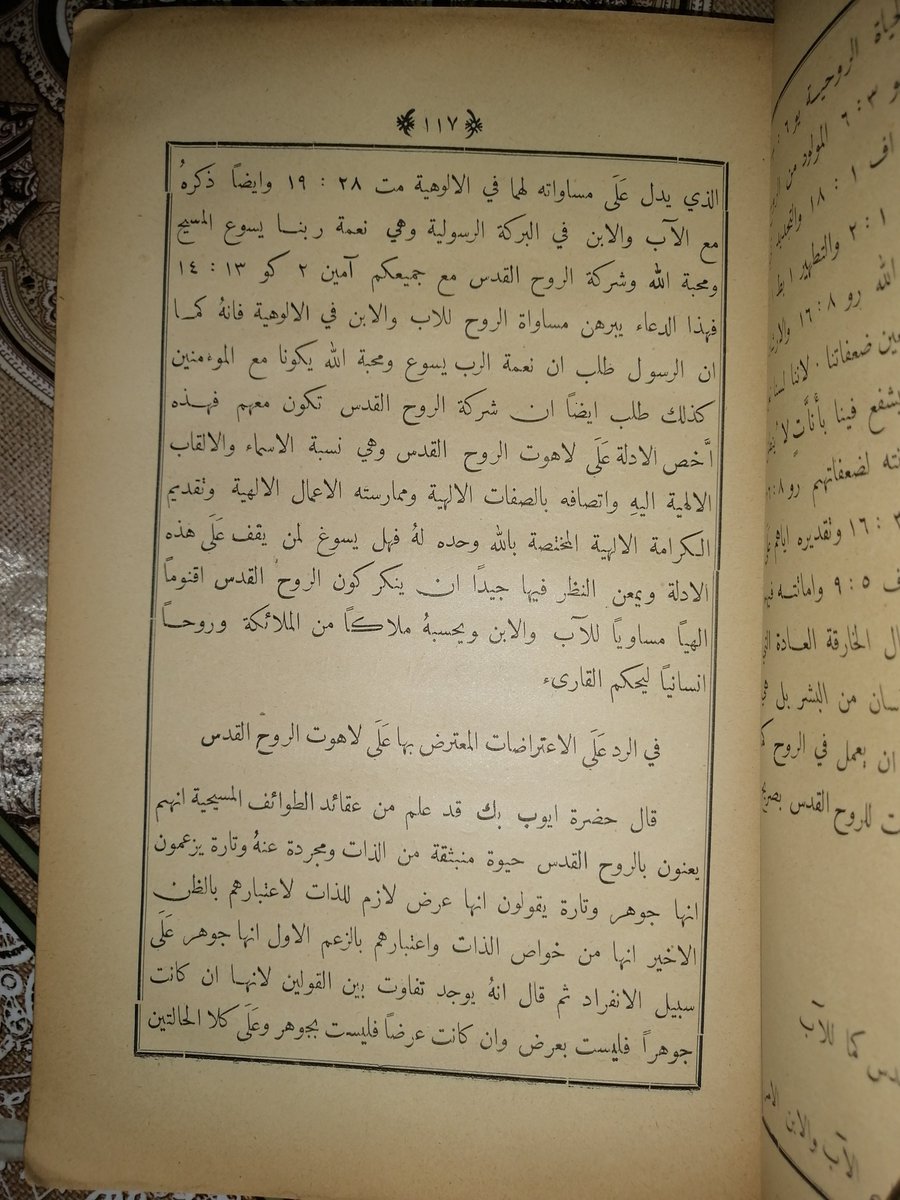 ١١٧
الذي يدل عَلَى مساواته لهما في الالوهية مت ٢٨ : ١٩ وايضاً ذكرهُ
مع الآب والابن في البركة الرسولية وهي نعمة ربنا يسوع المسيح
ومحبة الله وشركة الروح القدس مع جميعكم آمين ٢ كو ١٣ : ١٤
فهذا الدعاء يبرهن مساواة الروح للاب والابن في الالوهية فانهُ كما
ان الرسول طلب ان نعمة الرب يسوع ومحبة الله يكونا مع الموءمنين
كذلك طلب ايضاً ان شركة الروح القدس تكون معهم فهذه
أخص الادلة عَلَى لاهوت الروح القدس وهي نسبة الاسماء والالقاب
الالهية اليهِ واتصافه بالصفات الالهية وممارسته الاعمال الالهية وتقديم
الكرامة الالهية المختصة بالله وحده لهُ فهل يسوغ لمن يقف عَلَى هذه
الادلة ويمعن النظر فيها جيدًا ان ينكر كون الروح القدس اقنوماً
الهياً مساوياً للآب والابن ويحسبهُ ملاكاً من الملائكة وروحاً
انسانياً ليحكم القارىء
في الرد عَلَى الاعتراضات المعترض بها عَلَى لاهوت الروح القدس
قال حضرة ايوب بك قد علم من عقائد الطوائف المسيحية انهم
يعنون بالروح القدس حيوة منبثقة من الذات ومجردة عنهُ وتارة يزعمون
انها جوهر وتارة يقولون انها عرض لازم للذات لاعتبارهم بالظن
الاخير انها من خواص الذات واعتبارهم بالزعم الاول انها جوهر عَلَى
سبيل الانفراد ثم قال انهُ يوجد تفاوت بين القولين لانها ان كانت
جوهراً فليست بعرض وان كانت عرضاً فليست بجوهر وعَلَى كلا الحالتين
الروحية
المولود من
اف ١ : ١٨
١ : ٢ والتطهير ١ بط
الله رو ٨ : ١٦
ضعفاتنا . لاننا لسنا
يشفع فينا بأنَّات لا
لضعفاتهم رو ٨
١٦ وتقديره اياهم
٥ : ٩ وامانته فيها
الخارقة العادة
من البشر بل
ان يعمل في الروح
للروح القدس
كما للآب
الآب والابن